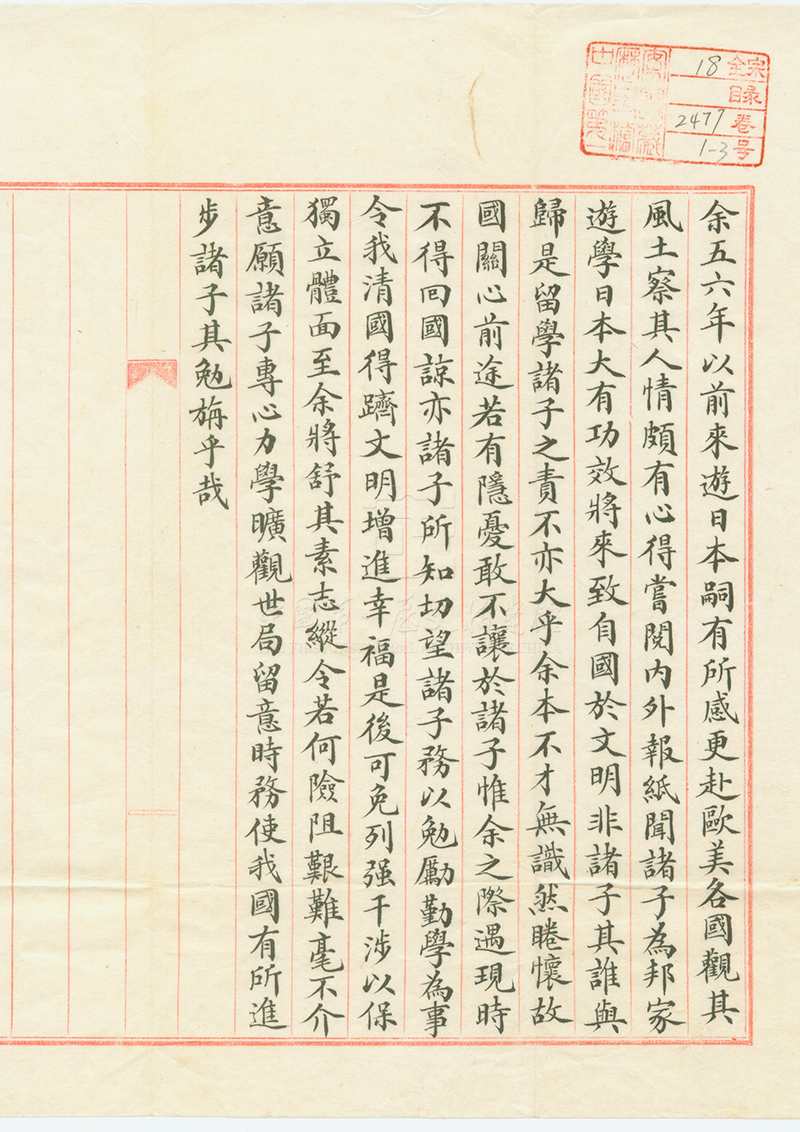 全宗 18
目录
卷号 2477
1-3
余五六年以前來遊日本嗣有所感更赴歐美各國觀其
風土察其人情頗有心得嘗閱内外報紙聞諸子為邦家
遊學日本大有功效將來致自國於文明非諸子其誰與
歸是留學諸子之責不亦大乎余本不才無識然睠懷故
國關心前途若有隱憂敢不讓於諸子惟余之際遇現時
不得回國諒亦諸子所知切望諸子務以勉勵勤學為事
令我清國得躋文明增進幸福是後可免列强干涉以保
獨立體面至余將舒其素志縱令若何險阻艱難毫不介
意願諸子專心力學曠觀世局留意時務使我國有所進
步諸子其勉旃乎哉